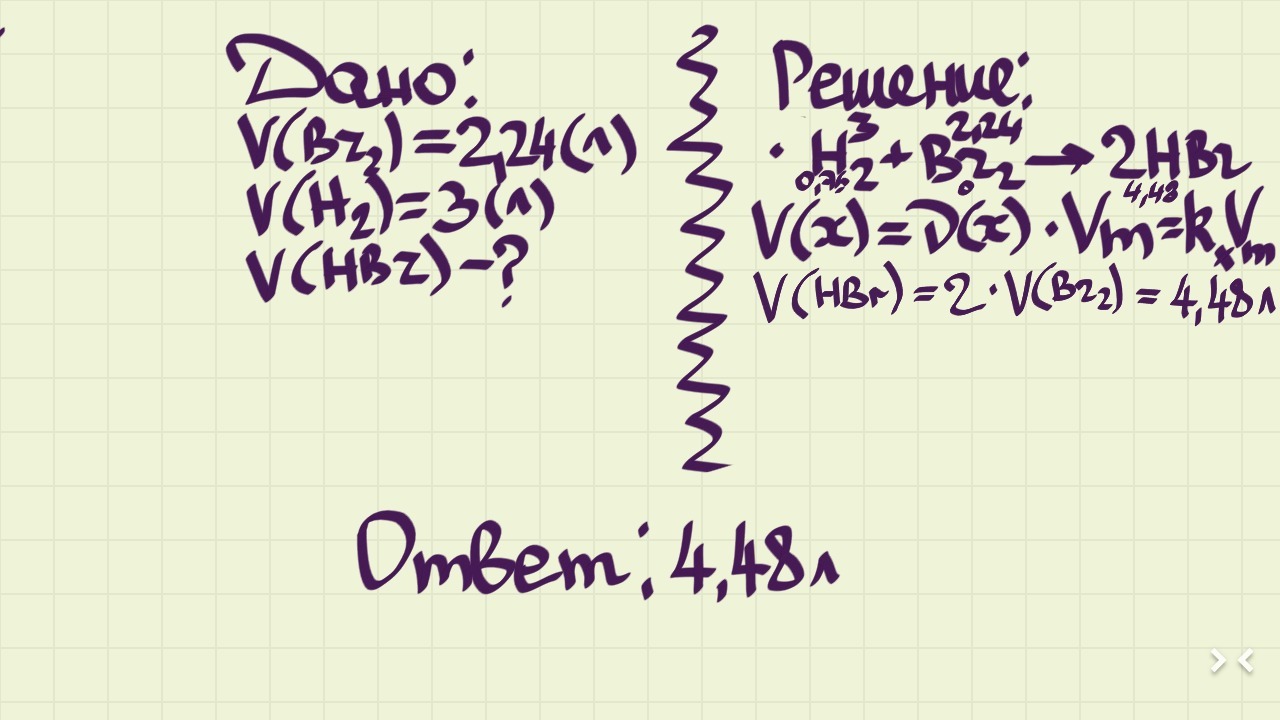 Дано:
V(Br₂) = 2,24(л)
V(H₂) = 3(л)
V(HBr) - ?
Решение:
3 2,24
· H₂ + Br₂ → 2HBr
0,76 0 4,48
V(x) = ν(x) · Vm = kₓVm
V(HBr) = 2 · V(Br₂) = 4,48л
Ответ: 4,48л